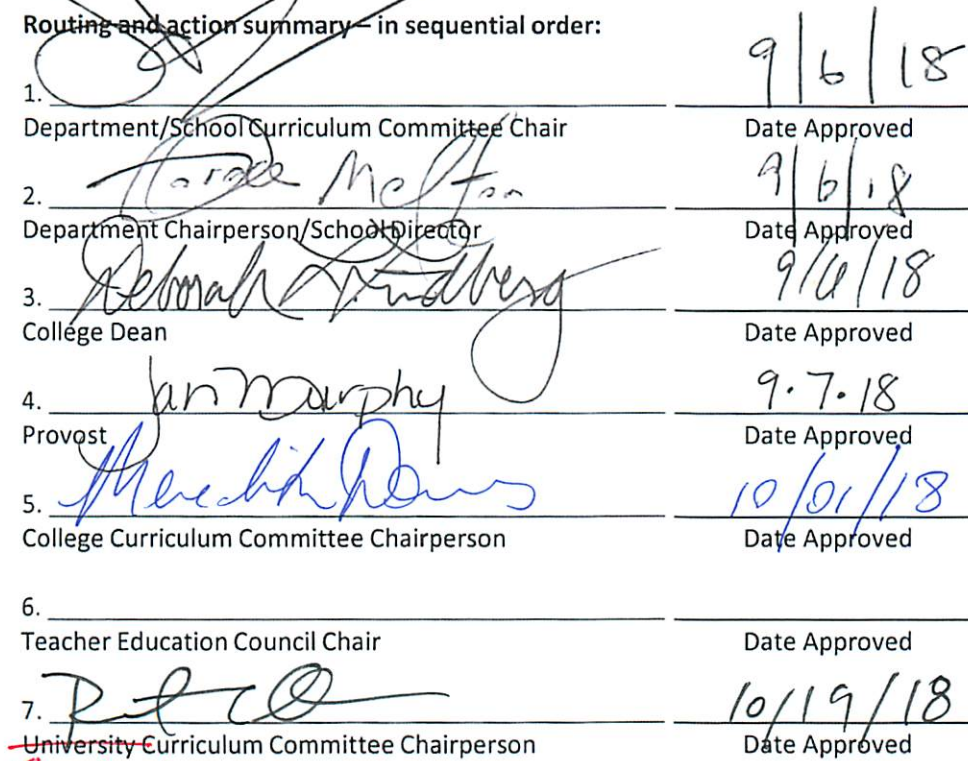 Routing and action summary – in sequential order:
1. 9/6/18
Department/School Curriculum Committee Chair Date Approved
2. Melton 9/6/18
Department Chairperson/School Director Date Approved
3. Deborah Lindberg 9/6/18
College Dean Date Approved
4. Jan Murphy 9.7.18
Provost Date Approved
5. Meredith Downs 10/01/18
College Curriculum Committee Chairperson Date Approved
6.
Teacher Education Council Chair Date Approved
7. 10/19/18
University Curriculum Committee Chairperson Date Approved